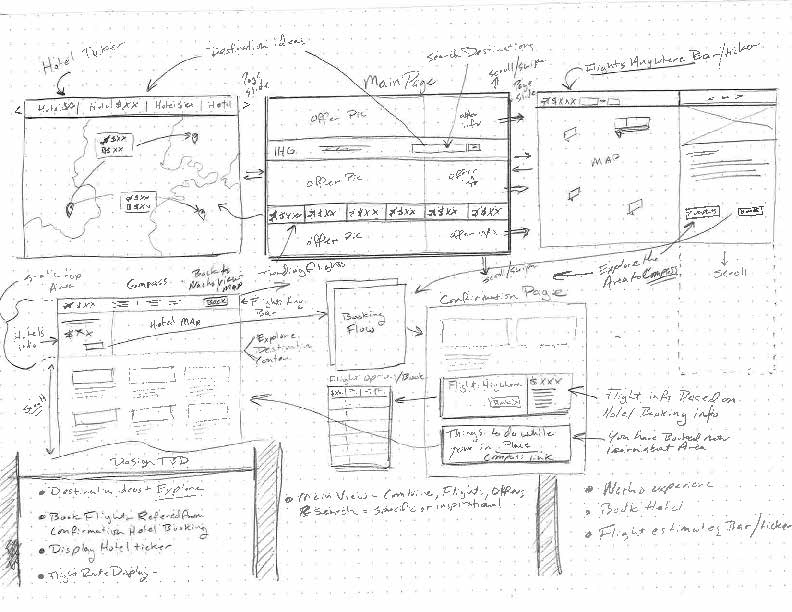 Hotel Ticker
Destination ideas
Search Destinations
Flights Anywhere Bar/ticker
Page
Slide
Main Page
scroll/swipe
Page
Slide
Hotel $XX | Hotel $XX | Hotel $XX | Hotel
Offer Pic
offer
info
$XXX
$XX
$XX
IHG
MAP
Offer Pic
offer
$XX
$XX
$XXX $XXX $XXX $XXX $XXX $XXX
Offer Pic
offer info
Book
Trending Flights
scroll/swipe
Explore the
Area to Compass
Scroll
Static top
Area
Compass
Back to
View
Map
$XXX
Book
Bar
Hotel MAP
Hotels
info
$XXX
Explore
Destination
Content
Scroll
Booking
Flow
Confirmation Page
Flight Options/Book
Flight Anywhere
$XXX
Book
Flight info Based on
Hotel Booking info
Things to do while
your in Place
Compass link
You have Booked now
learn about Area
Design TBD
• Destination ideas + Explore
• Book Flights Refered from
Confirmation Hotel Booking
• Display Hotel ticker
• Flight Route Display -
• Main View - Combine, Flight, Offers,
& Search - specific or inspirational
experience
• Book Hotel
• Flight estimates Bar/ticker